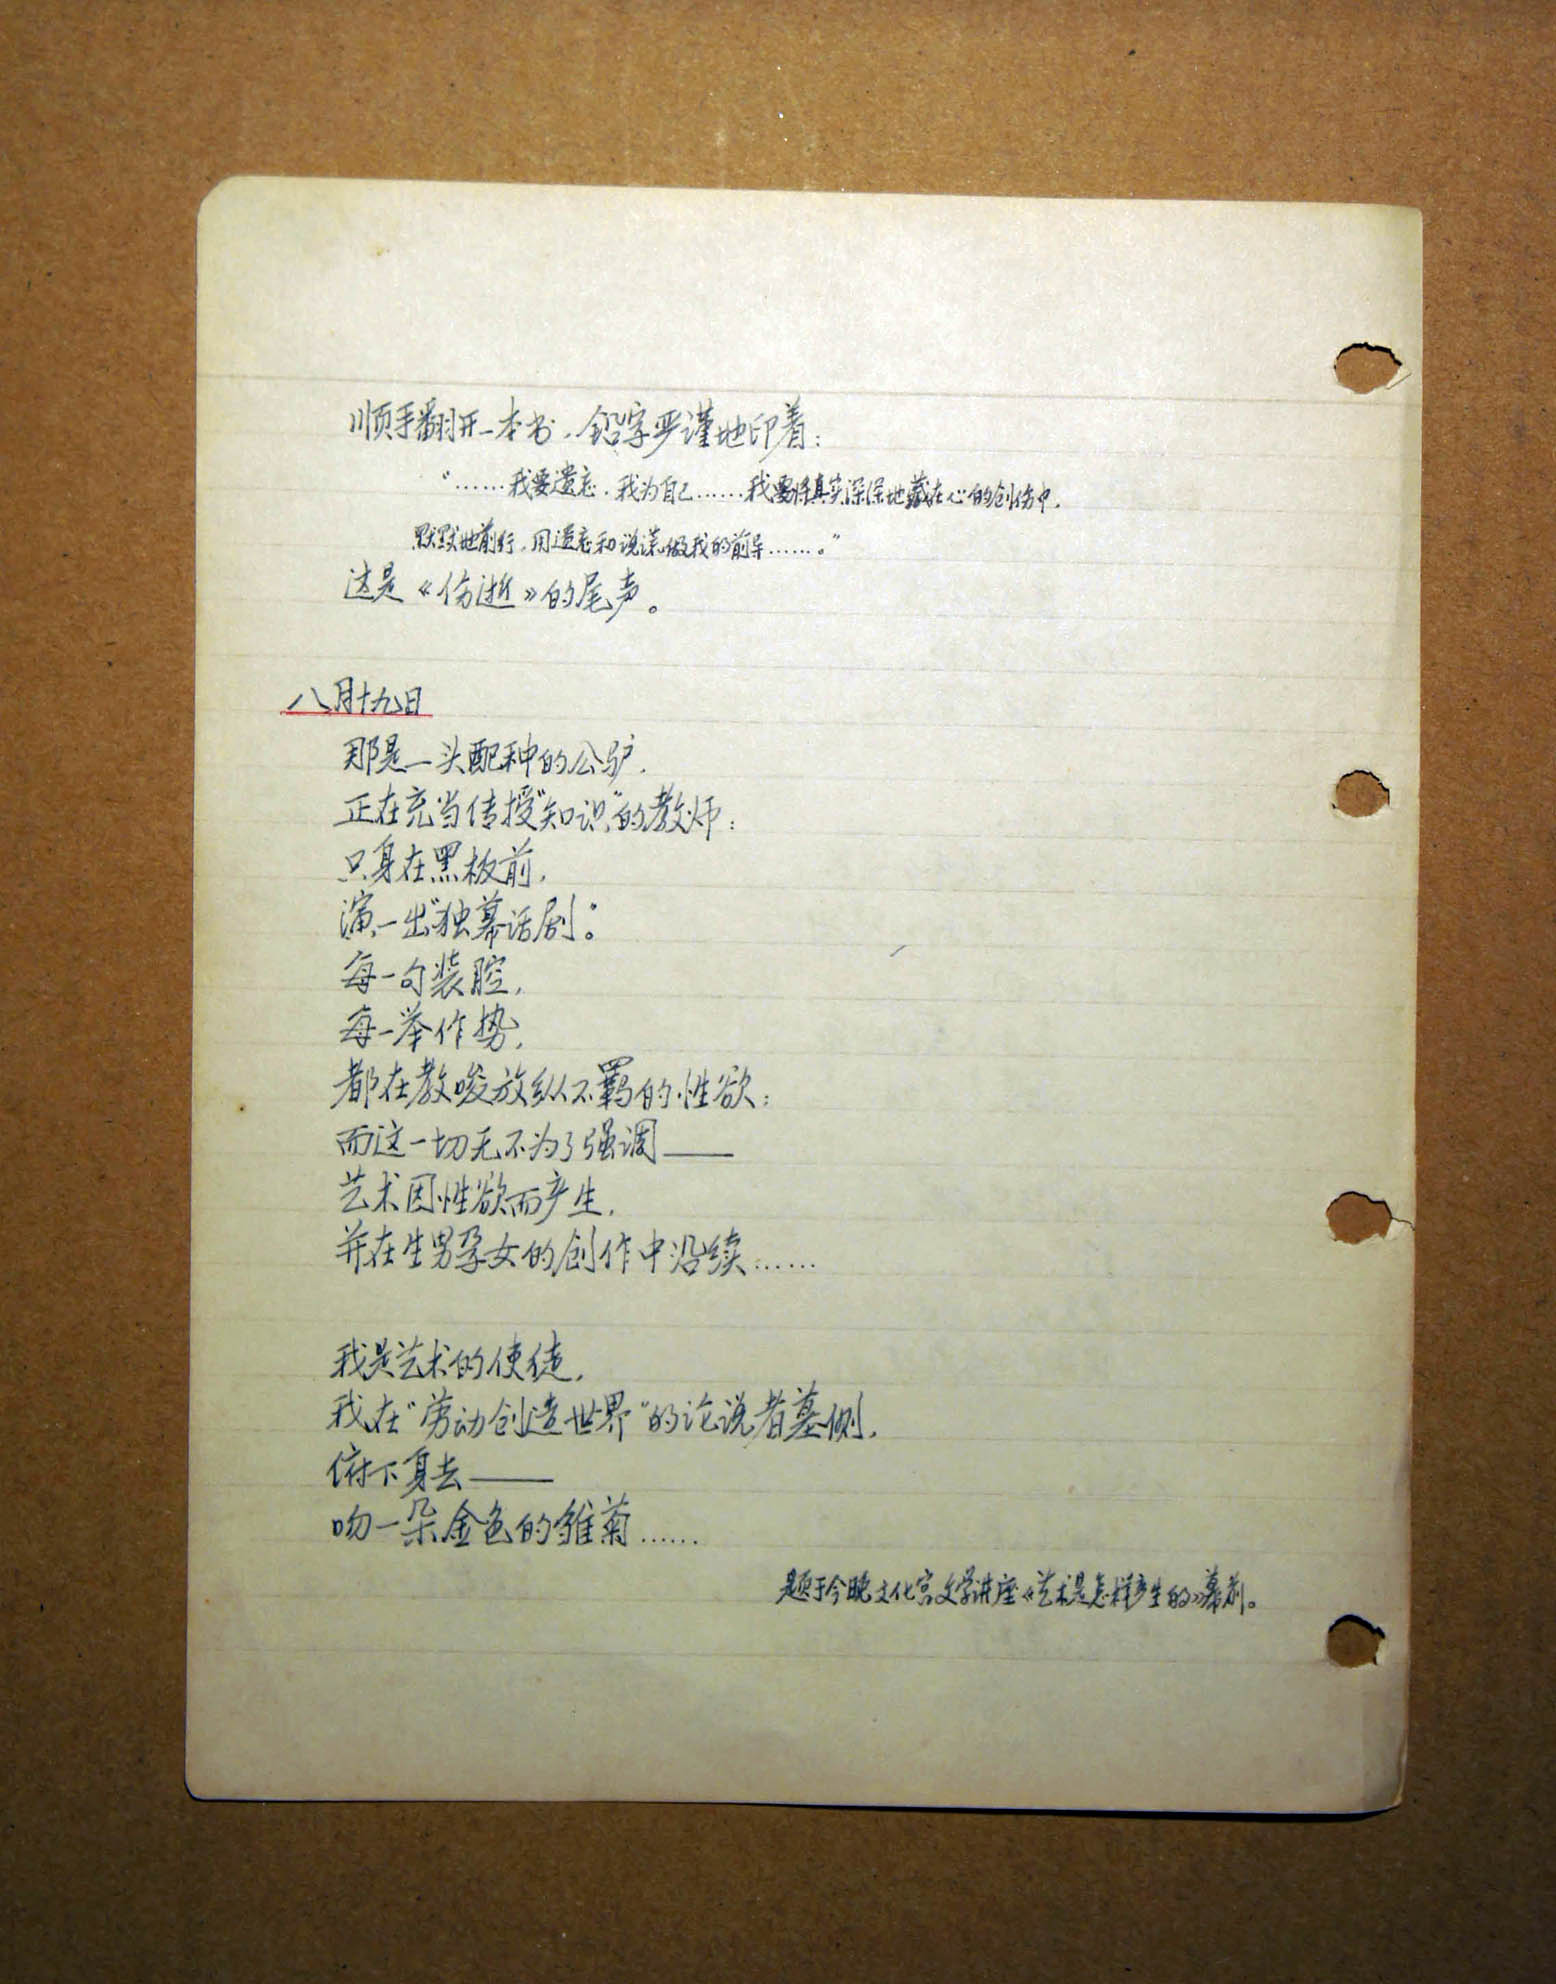 顺手翻开一本书，铅字严谨地印着：
“……我要遗忘，我为自己……我要将真实深深地藏在心的创伤中，
默默地前行，用遗忘和说谎做我的前导……。”
这是《伤逝》的尾声。
八月十九日
那是一头配种的公驴，
正在充当传授“知识”的教师：
只身在黑板前，
演一出“独幕话剧”。
每一句装腔，
每一举作势，
都在教唆放纵不羁的性欲；
而这一切无不为了强调——
艺术因性欲而产生，
并在生男孕女的创作中沿续……
我是艺术的使徒，
我在“劳动创造世界”的论说者墓侧，
俯下身去——
吻一朵金色的雏菊……
题于今晚文化宫文学讲座《艺术是怎样产生的》幕前。